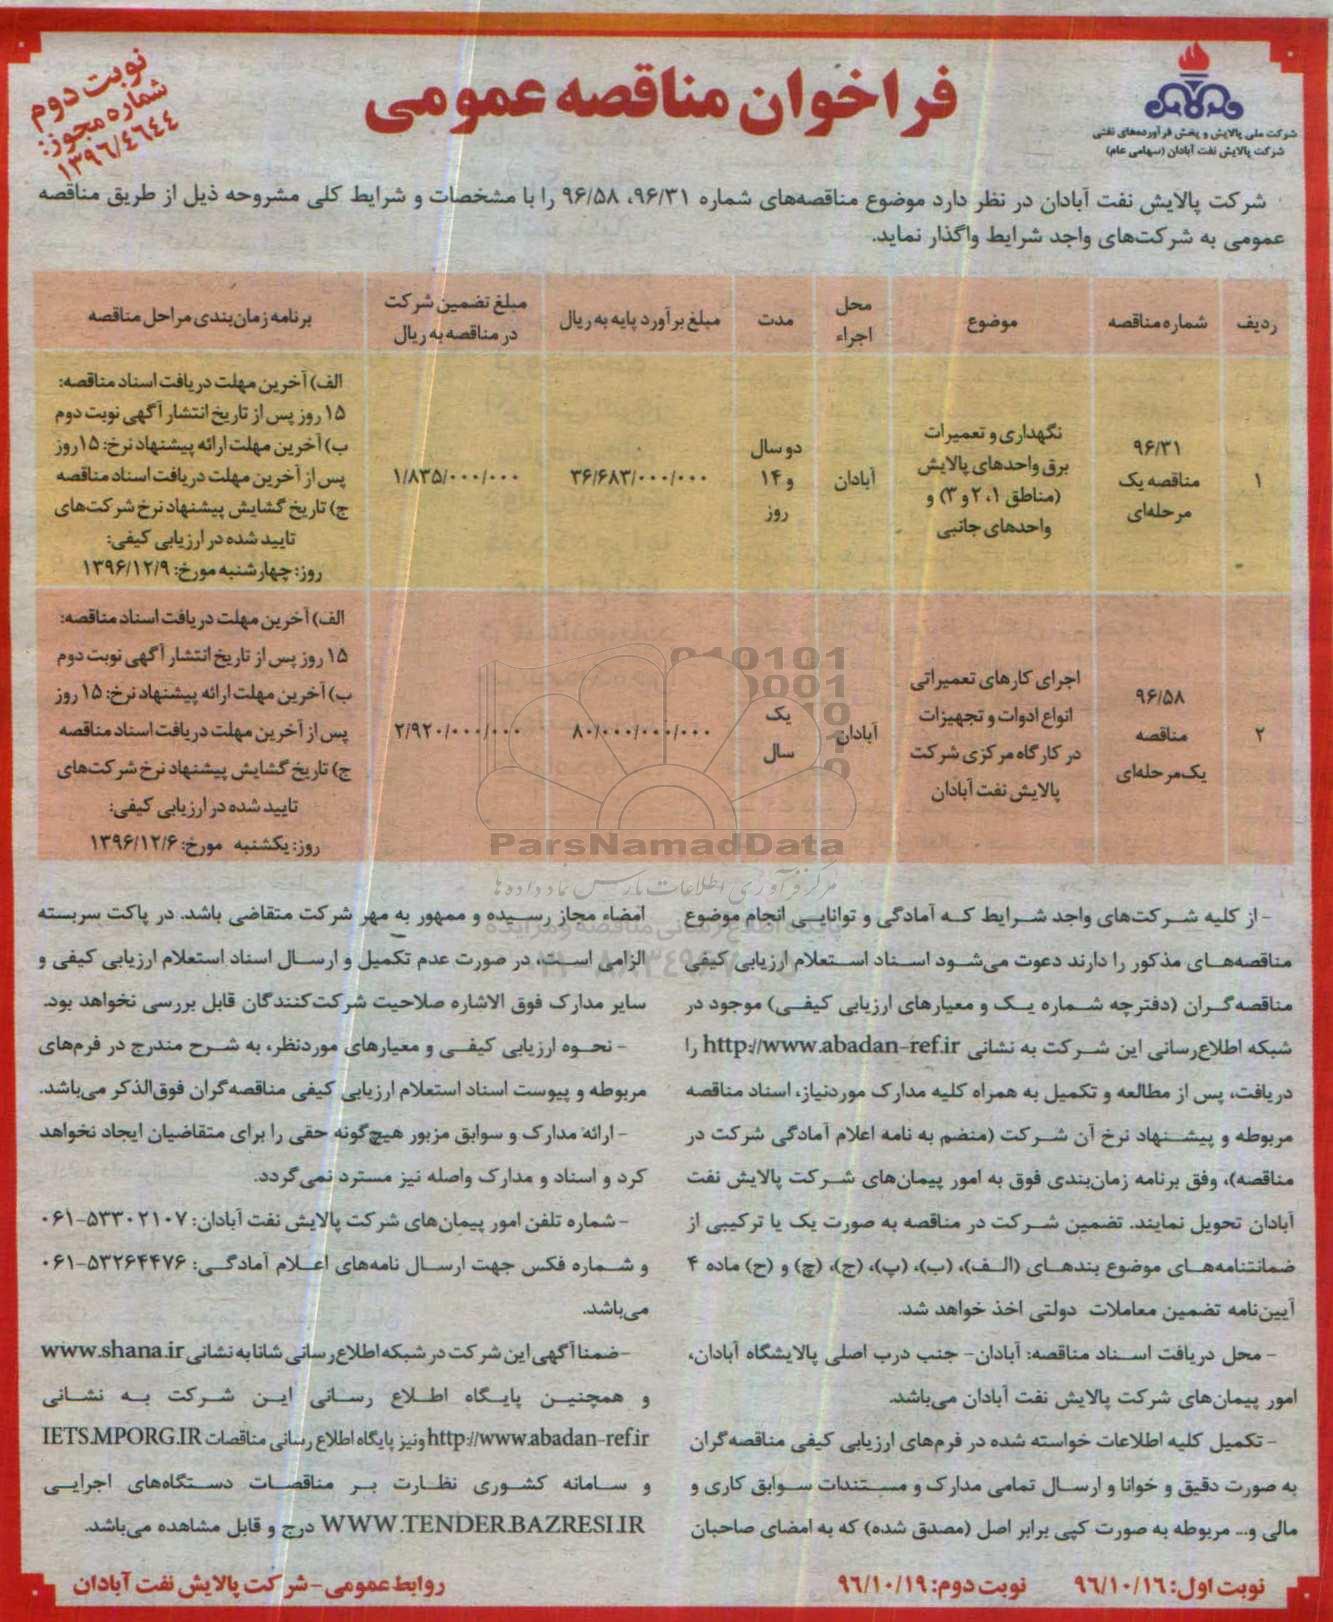 شرکت ملی پالایش و پخش فرآورده‌های نفتی
شرکت پالایش نفت آبادان (سهامی عام)
فراخوان مناقصه عمومی
نوبت دوم
شماره مجوز:
۱۳۹۶/۴۶۴۴
شرکت پالایش نفت آبادان در نظر دارد موضوع مناقصه‌های شماره ۹۶/۳۱، ۹۶/۵۸ را با مشخصات و شرایط کلی مشروحه ذیل از طریق مناقصه
عمومی به شرکت‌های واجد شرایط واگذار نماید.
ردیف
شماره مناقصه
موضوع
محل
اجراء
مدت
مبلغ برآورد پایه به ریال
مبلغ تضمین شرکت
در مناقصه به ریال
برنامه زمان‌بندی مراحل مناقصه
۱
۹۶/۳۱
مناقصه یک
مرحله‌ای
نگهداری و تعمیرات
برق واحدهای پالایش
(مناطق ۱، ۲ و ۳) و
واحدهای جانبی
آبادان
دو سال
و ۱۴
روز
۳۶/۶۸۳/۰۰۰/۰۰۰
۱/۸۳۵/۰۰۰/۰۰۰
الف) آخرین مهلت دریافت اسناد مناقصه:
۱۵ روز پس از تاریخ انتشار آگهی نوبت دوم
ب) آخرین مهلت ارائه پیشنهاد نرخ: ۱۵ روز
پس از آخرین مهلت دریافت اسناد مناقصه
ج) تاریخ گشایش پیشنهاد نرخ شرکت‌های
تایید شده در ارزیابی کیفی:
روز: چهارشنبه مورخ: ۱۳۹۶/۱۲/۹
۲
۹۶/۵۸
مناقصه
یک‌مرحله‌ای
اجرای کارهای تعمیراتی
انواع ادوات و تجهیزات
در کارگاه مرکزی شرکت
پالایش نفت آبادان
آبادان
یک
سال
۸۰/۰۰۰/۰۰۰/۰۰۰
۲/۹۲۰/۰۰۰/۰۰۰
الف) آخرین مهلت دریافت اسناد مناقصه:
۱۵ روز پس از تاریخ انتشار آگهی نوبت دوم
ب) آخرین مهلت ارائه پیشنهاد نرخ: ۱۵ روز
پس از آخرین مهلت دریافت اسناد مناقصه
ج) تاریخ گشایش پیشنهاد نرخ شرکت‌های
تایید شده در ارزیابی کیفی:
روز: یکشنبه مورخ: ۱۳۹۶/۱۲/۶
ParsNamadData
مرکز فرآوری اطلاعات پارس نماد داده‌ها
- از کلیه شرکت‌های واجد شرایط که آمادگی و توانایی انجام موضوع
مناقصه‌های مذکور را دارند دعوت می‌شود اسناد استعلام ارزیابی کیفی
مناقصه‌گران (دفترچه شماره یک و معیارهای ارزیابی کیفی) موجود در
شبکه اطلاع‌رسانی این شرکت به نشانی http://www.abadan-ref.ir را
دریافت، پس از مطالعه و تکمیل به همراه کلیه مدارک موردنیاز، اسناد مناقصه
مربوطه و پیشنهاد نرخ آن شرکت (منضم به نامه اعلام آمادگی شرکت در
مناقصه)، وفق برنامه زمان‌بندی فوق به امور پیمان‌های شرکت پالایش نفت
آبادان تحویل نمایند. تضمین شرکت در مناقصه به صورت یک یا ترکیبی از
ضمانتنامه‌های موضوع بندهای (الف)، (ب)، (پ)، (ج)، (چ) و (ح) ماده ۴
آیین‌نامه تضمین معاملات دولتی اخذ خواهد شد.
- محل دریافت اسناد مناقصه: آبادان- جنب درب اصلی پالایشگاه آبادان،
امور پیمان‌های شرکت پالایش نفت آبادان می‌باشد.
- تکمیل کلیه اطلاعات خواسته شده در فرم‌های ارزیابی کیفی مناقصه‌گران
به صورت دقیق و خوانا و ارسال تمامی مدارک و مستندات سوابق کاری و
مالی و... مربوطه به صورت کپی برابر اصل (مصدق شده) که به امضای صاحبان
امضاء مجاز رسیده و ممهور به مهر شرکت متقاضی باشد. در پاکت سربسته
الزامی است، در صورت عدم تکمیل و ارسال اسناد استعلام ارزیابی کیفی و
سایر مدارک فوق الاشاره صلاحیت شرکت‌کنندگان قابل بررسی نخواهد بود.
- نحوه ارزیابی کیفی و معیارهای موردنظر، به شرح مندرج در فرم‌های
مربوطه و پیوست اسناد استعلام ارزیابی کیفی مناقصه‌گران فوق‌الذکر می‌باشد.
- ارائه مدارک و سوابق مزبور هیچ‌گونه حقی را برای متقاضیان ایجاد نخواهد
کرد و اسناد و مدارک واصله نیز مسترد نمی‌گردد.
- شماره تلفن امور پیمان‌های شرکت پالایش نفت آبادان: ۵۳۳۰۲۱۰۷-۰۶۱
و شماره فکس جهت ارسال نامه‌های اعلام آمادگی: ۵۳۲۶۴۴۷۶-۰۶۱
می‌باشد.
-ضمنا آگهی این شرکت در شبکه اطلاع‌رسانی شانا به نشانی www.shana.ir
و همچنین پایگاه اطلاع رسانی این شرکت به نشانی
http://www.abadan-ref.ir ونیز پایگاه اطلاع رسانی مناقصات IETS.MPORG.IR
و سامانه کشوری نظارت بر مناقصات دستگاه‌های اجرایی
WWW.TENDER.BAZRESI.IR درج و قابل مشاهده می‌باشد.
نوبت اول: ۹۶/۱۰/۱۶ نوبت دوم: ۹۶/۱۰/۱۹
روابط عمومی-شرکت پالایش نفت آبادان